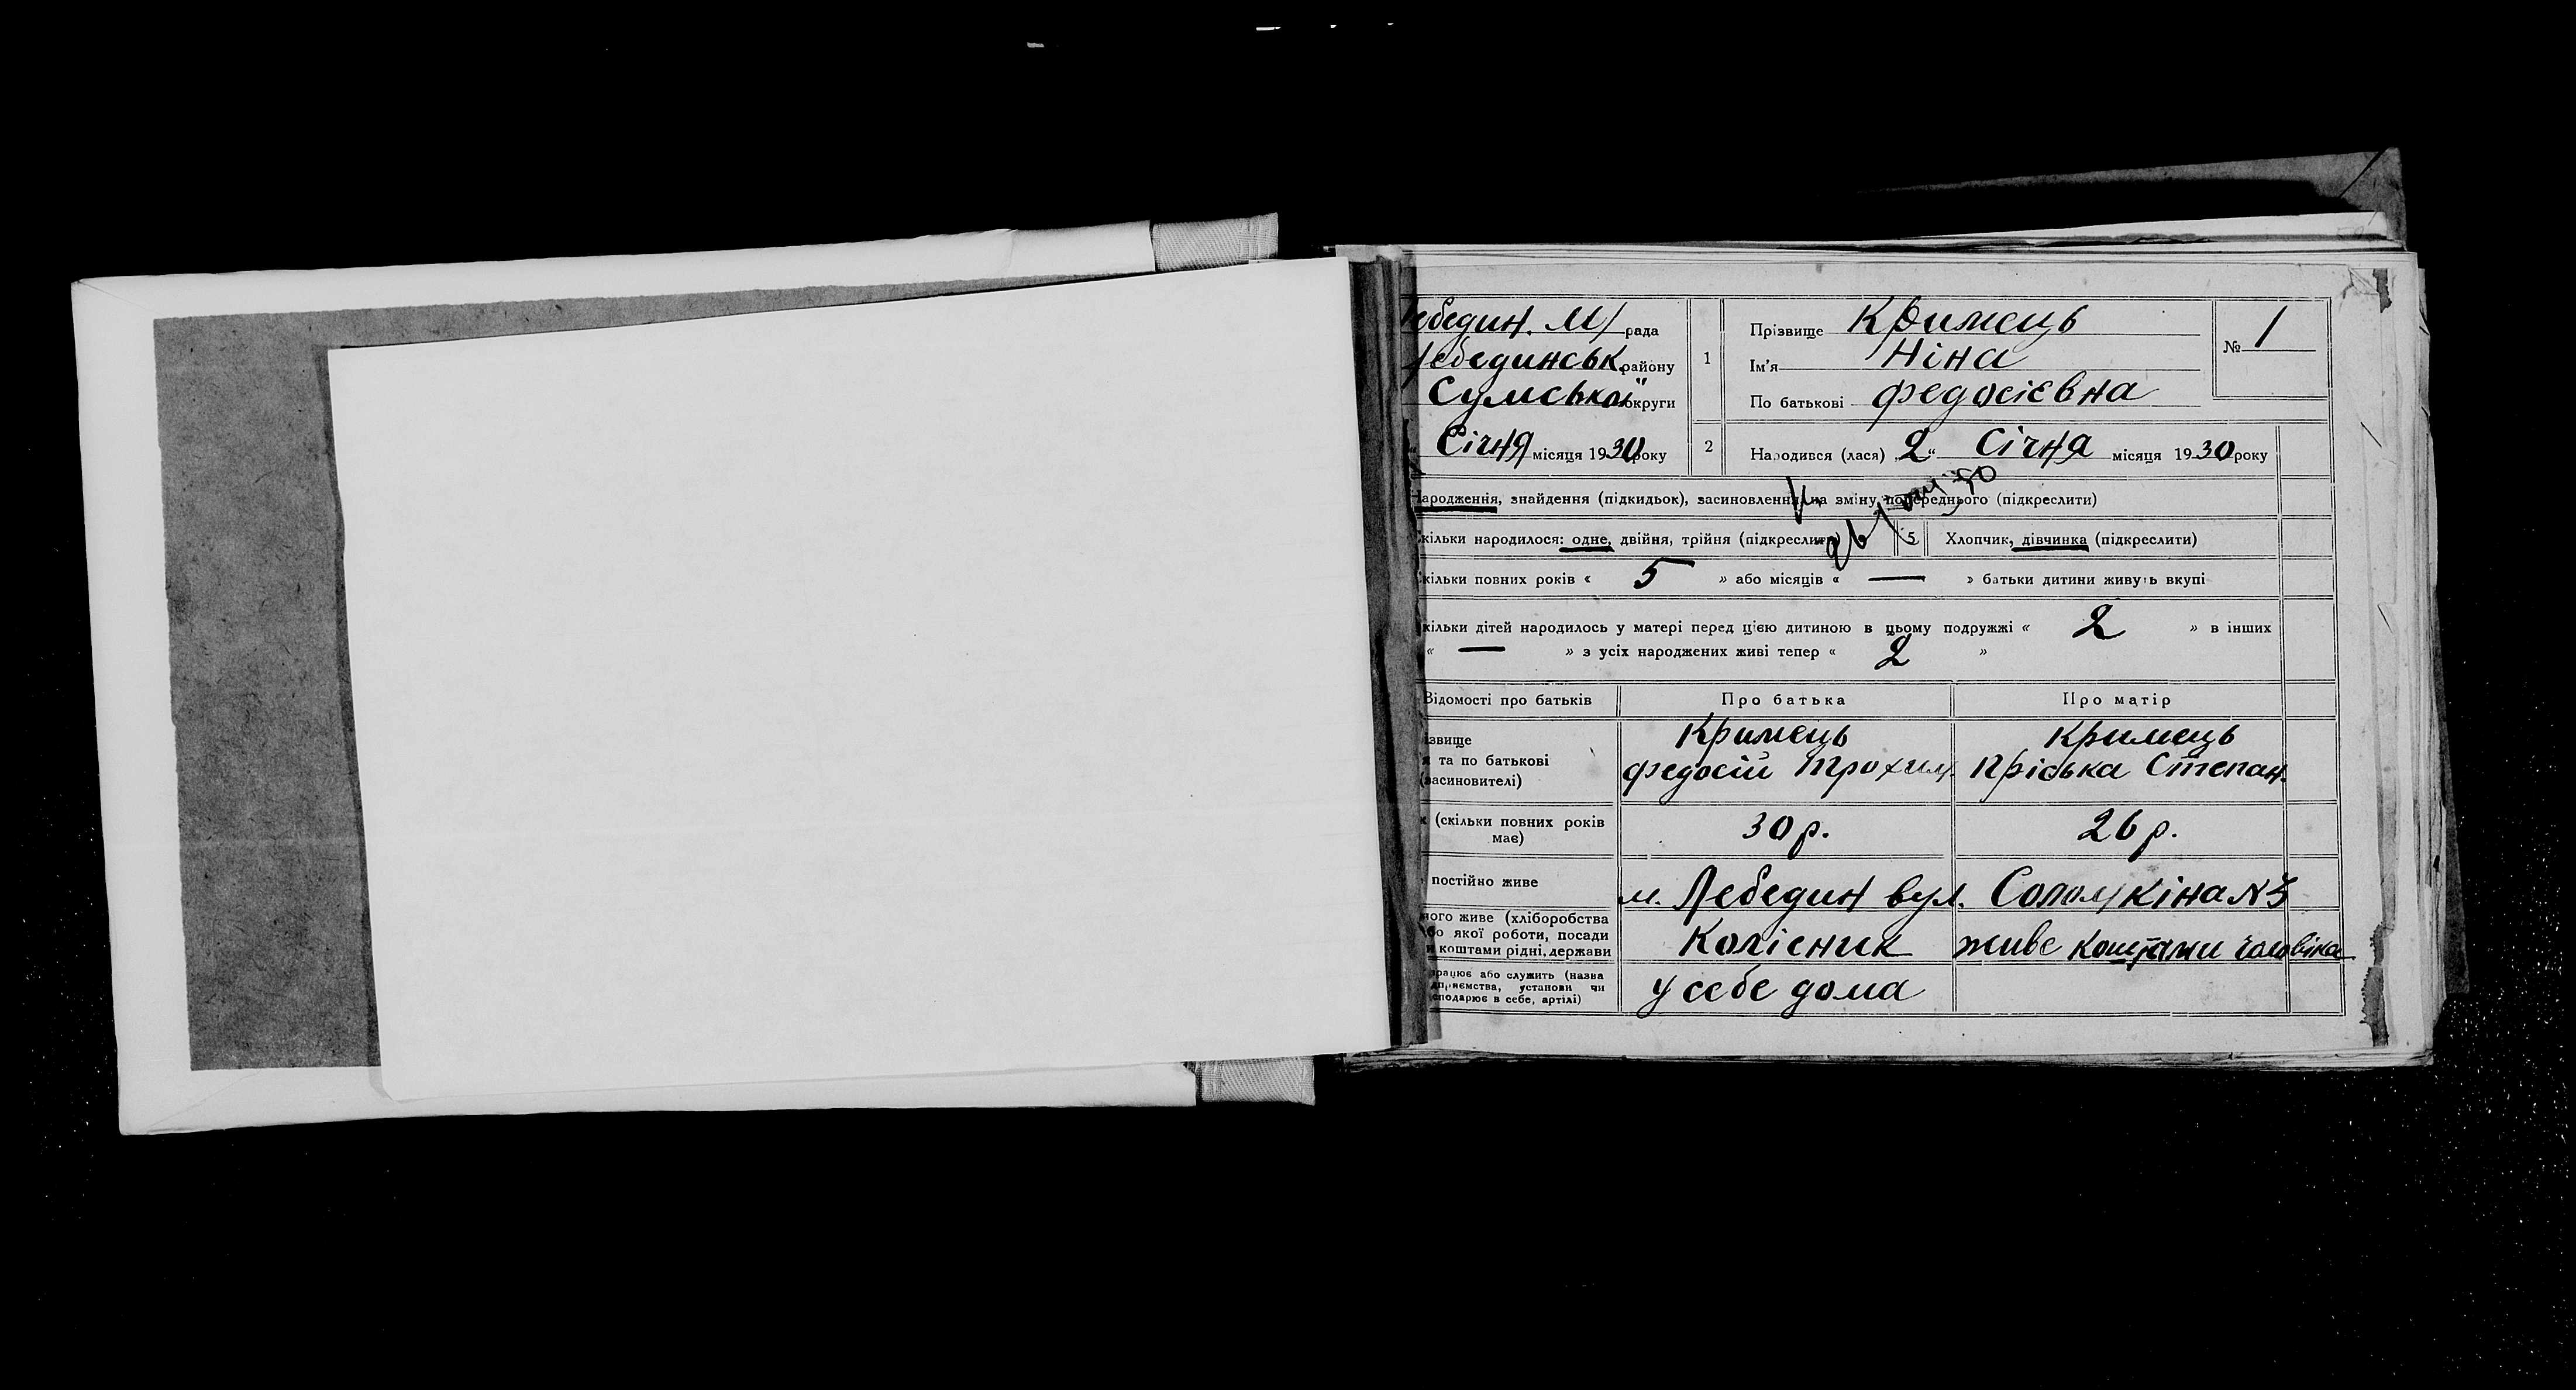 ебедин. М/ рада
Лебединськ. району
Сумської округи
Січня місяця 1930 року
1
Прізвище Кримець
Ім'я Ніна
По батькові Федосієвна
№ 1
2
Народився (лася) „2“ Січня місяця 1930 року
Народження, знайдення (підкидьок), засиновлення, на зміну попереднього (підкреслити)
кільки народилося: одне, двійня, трійня (підкреслити)
5
Хлопчик, дівчинка (підкреслити)
кільки повних років « 5 » або місяців « — » батьки дитини живуть вкупі
кільки дітей народилось у матері перед цією дитиною в цьому подружжі « 2 » в інших
« — » з усіх народжених живі тепер « 2 »
Відомості про батьків
Про батька
Про матір
ізвище
та по батькові
(засиновителі)
Кримець
Федосій Трохим.
Кримець
Пріська Степан.
(скільки повних років
має)
30 р.
26 р.
постійно живе
м. Лебедин вул.
ного живе (хліборобства
бо якої роботи, посади
и коштами рідні, держави
Колісник
живе коштами чоловіка
працює або служить (назва
дприємства, установи чи
сподарює в себе, артілі)
у себе дома